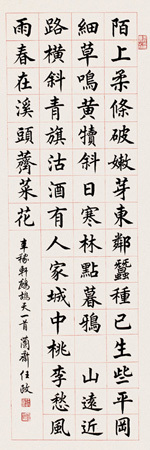 陌上柔條破嫩芽東鄰蠶種已生些平岡
細草鳴黃犢斜日寒林點暮鴉 山遠近
路橫斜青旗沽酒有人家城中桃李愁風
雨春在溪頭薺菜花
辛稼軒鷓鴣天一首 蘭齋任政